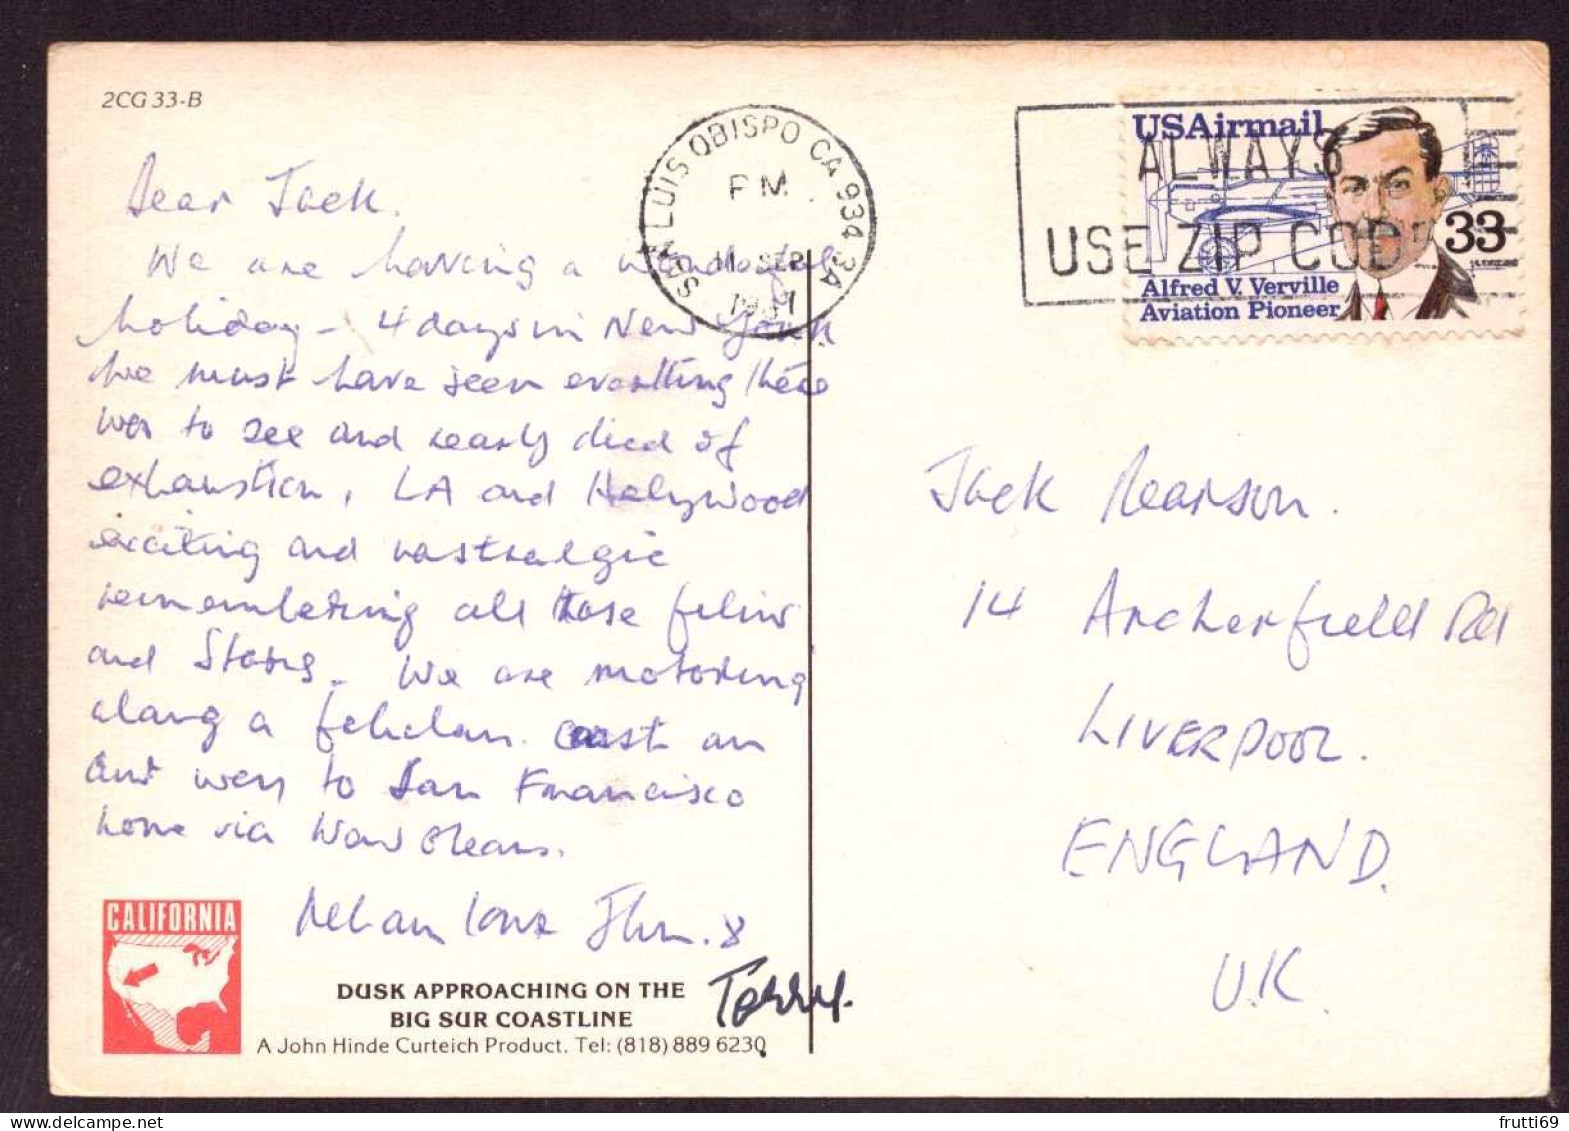 2CG 33-B
Dear Jack.
We are having a wonderful
holiday - 4 days in New York
we must have seen everthing there
was to see and nearly died of
exhaustion, LA and Hollywood
exciting and nostralgic
remembering all those films
and Stars. We are motoring
along a coast on
our way to San Francisco
home via New Orleans.
love John. x
Terry.
SAN LUIS OBISPO CA 934 3A
PM
11 SEP
1987
ALWAYS
USE ZIP CODE
USAirmail
33
Alfred V. Verville
Aviation Pioneer
Jack Pearson.
14 Archerfield Rd
LIVERPOOL.
ENGLAND.
U.K.
CALIFORNIA
DUSK APPROACHING ON THE
BIG SUR COASTLINE
A John Hinde Curteich Product. Tel: (818) 889 6230
frutti69